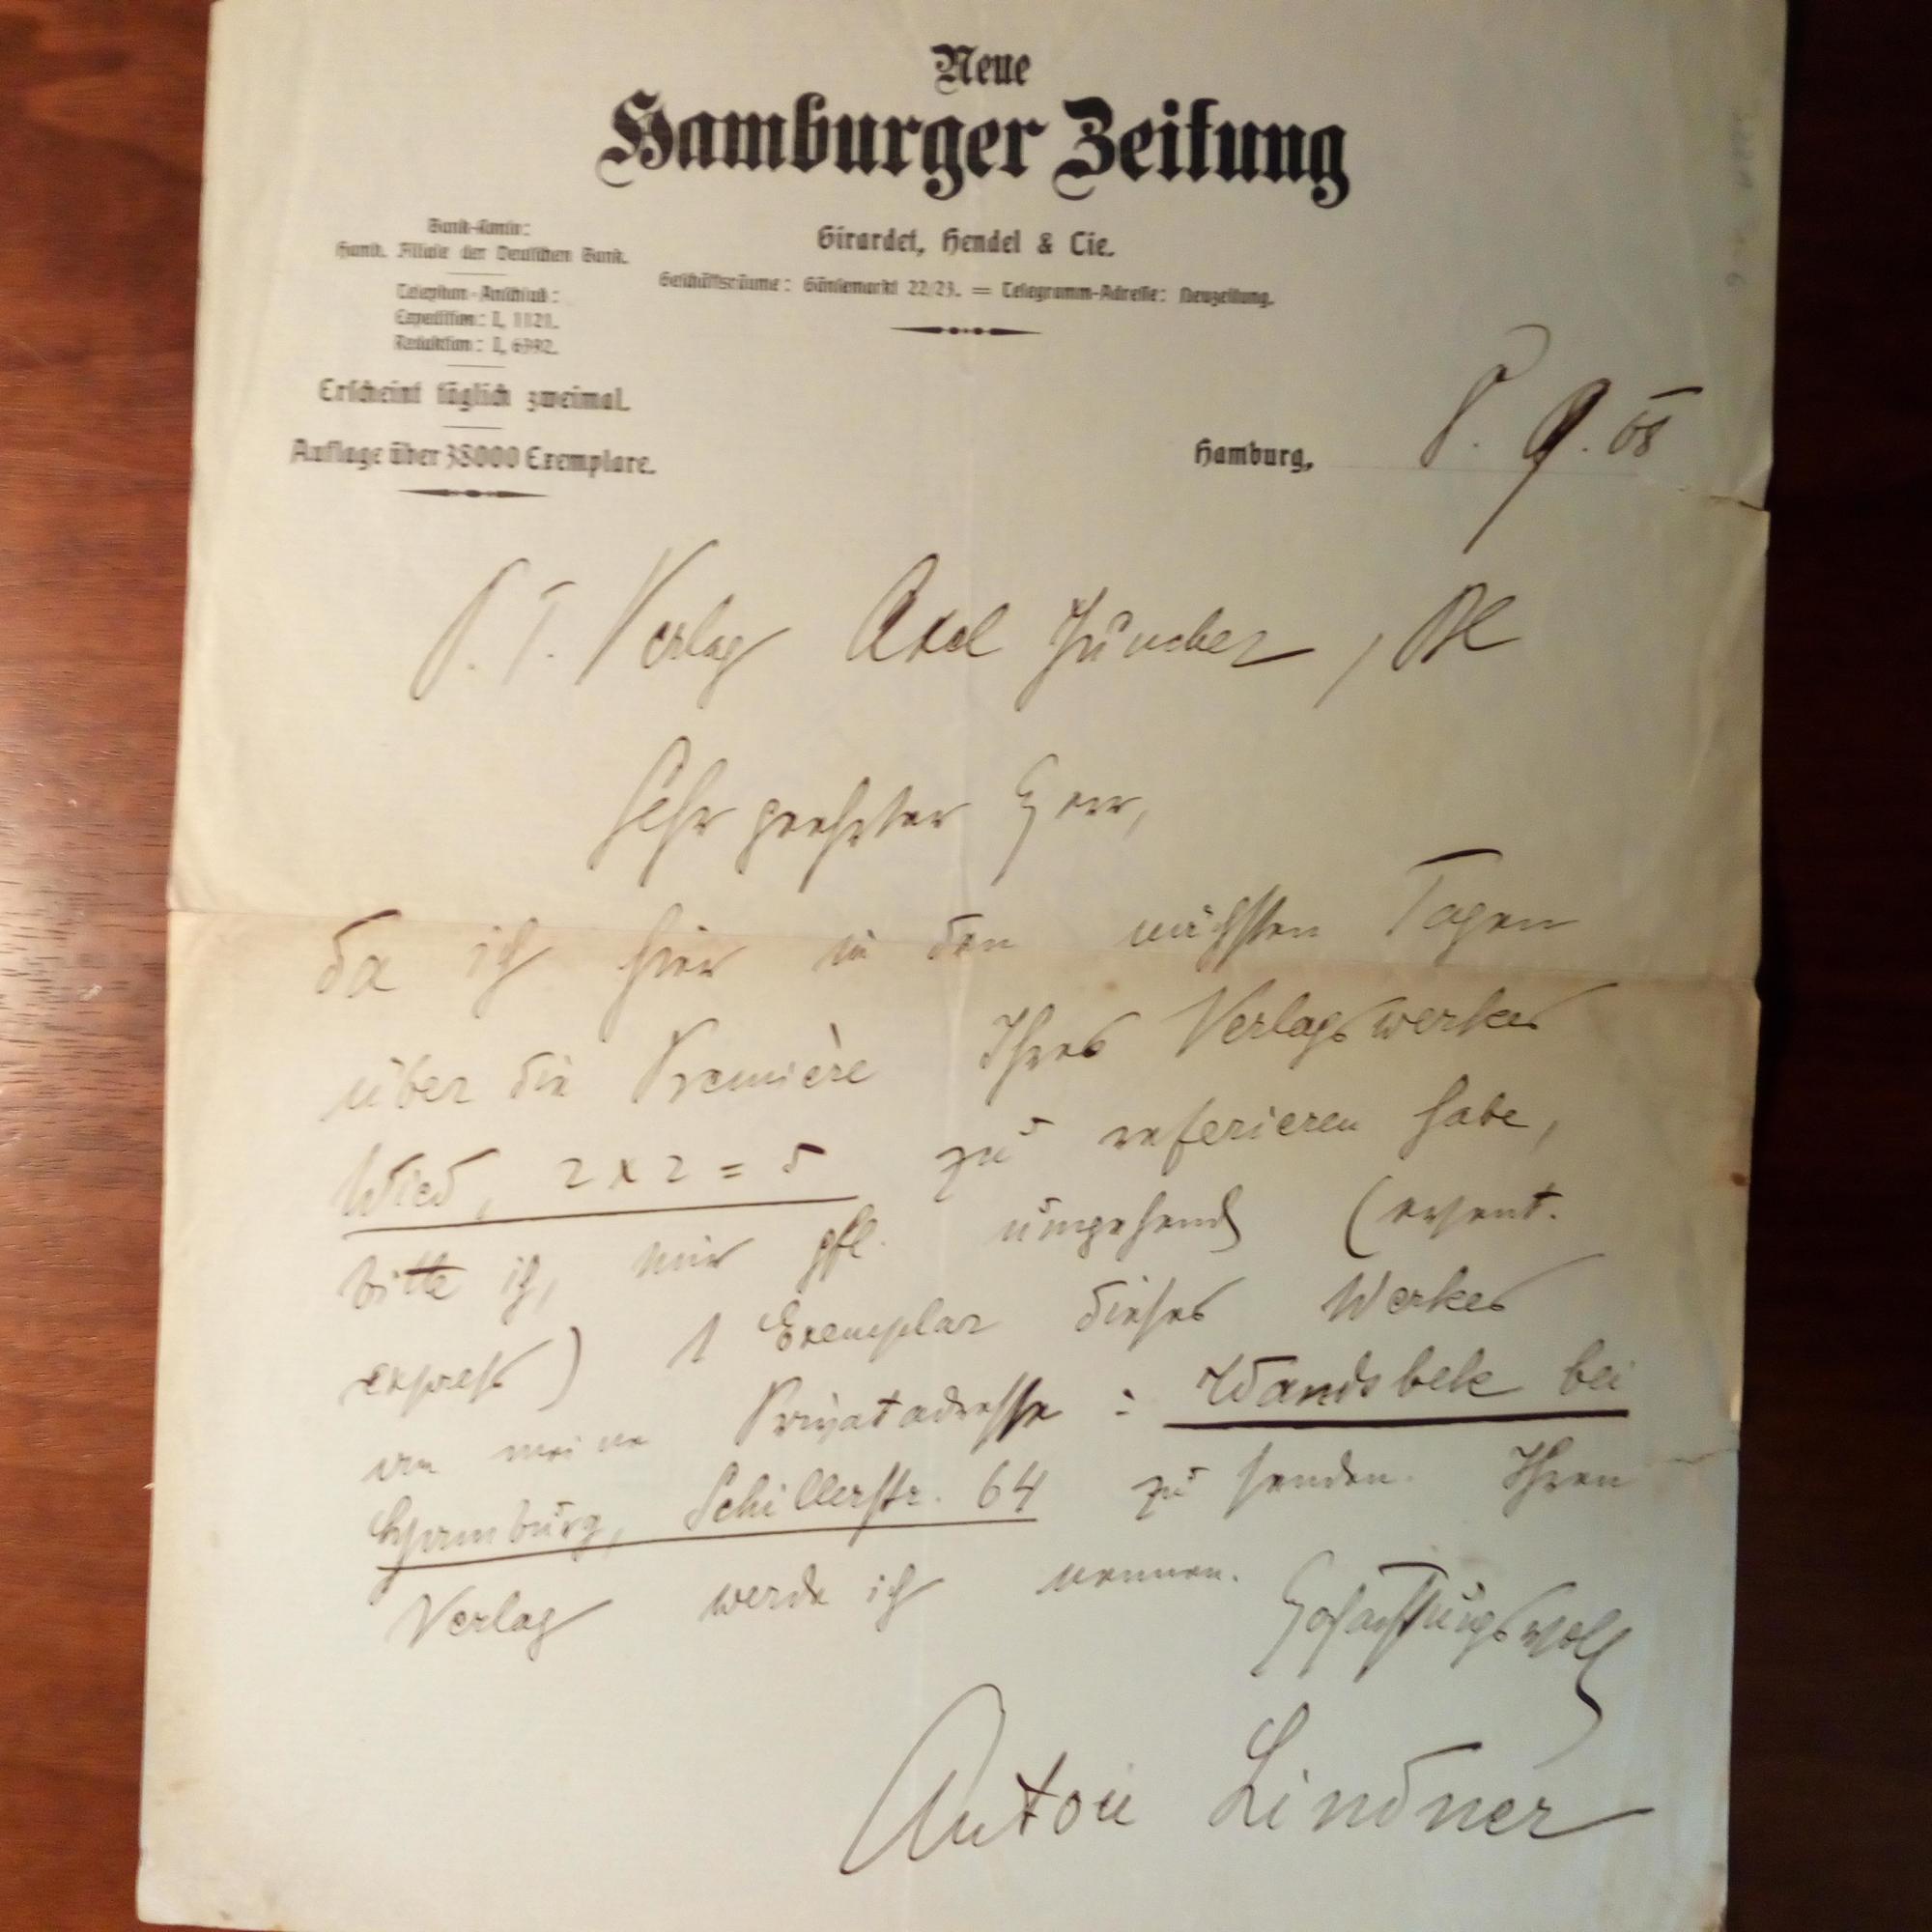 Neue
Hamburger Zeitung
Girardet, Hendel & Cie.
Geschäftsräume: Gänsemarkt 22/23. = Telegramm-Adresse: Neuzeitung.
Bank-Konto:
Hamb. Filiale der Deutschen Bank.
Telephon-Anschluß:
Expedition: I, 1121.
Redaktion: I, 6392.
Erscheint täglich zweimal.
Auflage über 38000 Exemplare.
Hamburg, 8. 9. 08
P. T. Verlag Axel Juncker,
Sehr geehrter Herr,
da ich hier in den nächsten Tagen
über die Première Ihres Verlagswerkes
Wied, 2 x 2 = 5 zu referieren habe,
bitte ich, mir gfl. umgehend (event.
express) 1 Exemplar dieses Werkes
an meine Privatadresse: Wandsbek bei
Hamburg, Schillerstr. 64 zu senden. Ihren
Verlag werde ich nennen.
Hochachtungsvoll
Anton Lindner